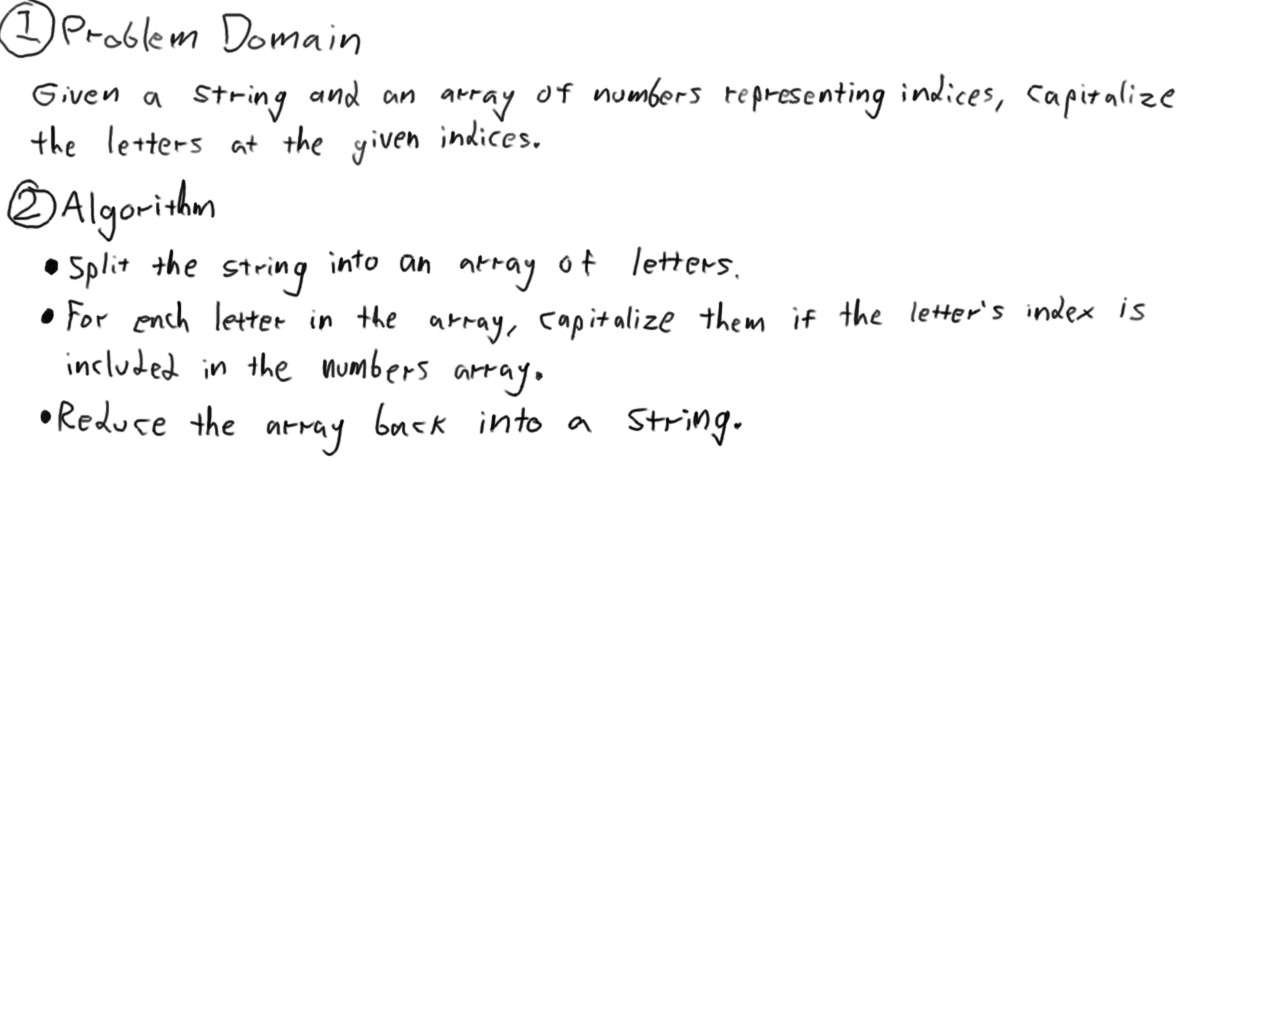 ① Problem Domain
Given a string and an array of numbers representing indices, capitalize
the letters at the given indices.
② Algorithm
• Split the string into an array of letters.
• For each letter in the array, capitalize them if the letter's index is
included in the numbers array.
• Reduce the array back into a string.